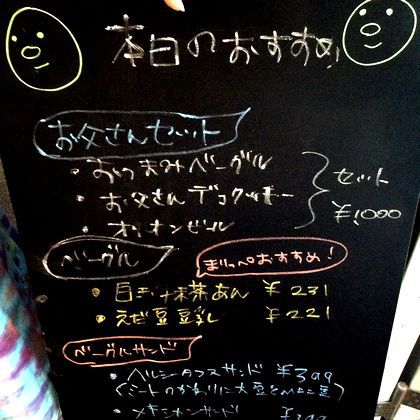 本日のおすすめ!
お父さんセット
・おつまみベーグル
・お父さんデコクッキー
・オリオンビール
セット
¥1,000
ベーグル
まりっぺおすすめ!
・白ゴマ抹茶あん ¥231
・えだ豆豆乳 ¥221
ベーグルサンド
・ヘルシータコスサンド ¥399
(ミートのかわりに大豆とひよこ豆)
・メキシカンサンド ¥399